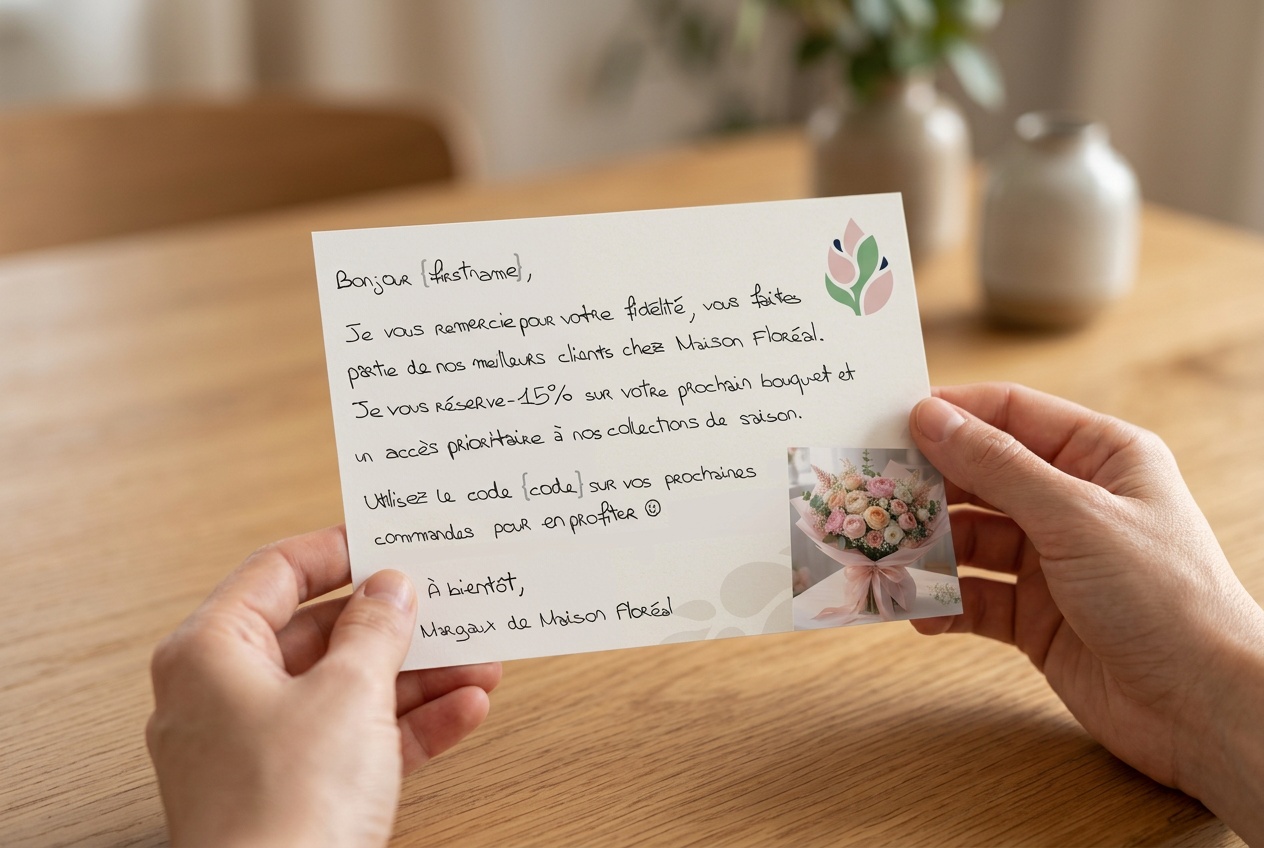 Bonjour {firstname},
Je vous remercie pour votre fidélité, vous faites
partie de nos meilleurs clients chez Maison Floréal.
Je vous réserve -15% sur votre prochain bouquet et
un accès prioritaire à nos collections de saison.
Utilisez le code {code} sur vos prochaines
commandes pour en profiter ☺
À bientôt,
Margaux de Maison Floréal